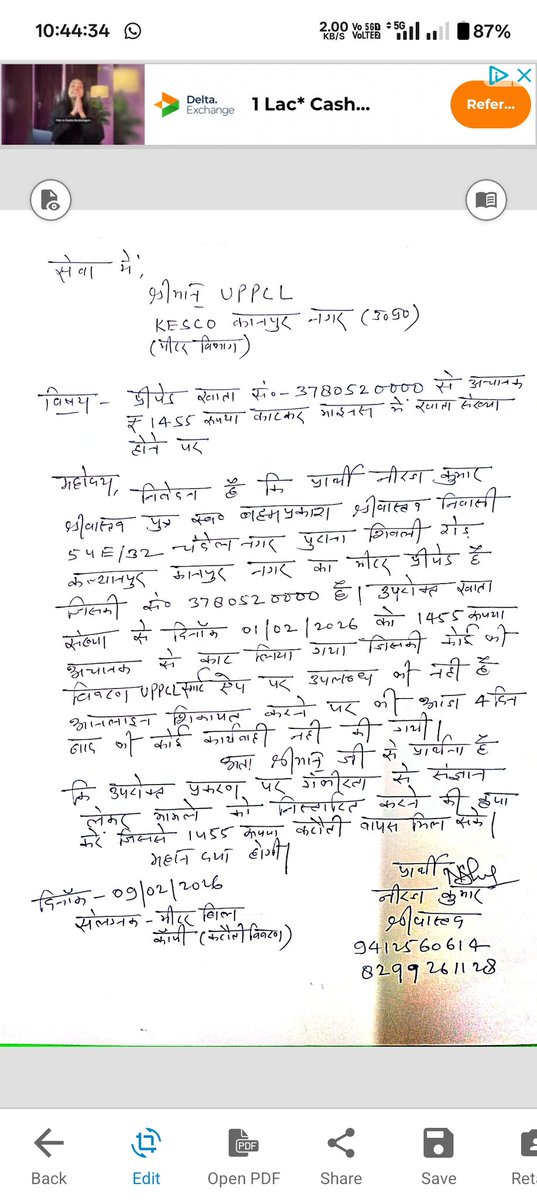 10:44:34
2.00 KB/S Vo 5G D VoLTE B 5G 87%
Delta.
Exchange
1 Lac* Cash...
Refer...
सेवा में,
श्रीमान् UPPCL
KESCO कानपुर नगर (उ०प्र०)
(मीटर विभाग)
विषय - प्रीपेड खाता सं०- 3780520000 से अचानक
₹ 1455 रूपया काटकर माइनस में खाता संख्या
होने पर
महोदय,
निवेदन है कि प्रार्थी नीरज कुमार
श्रीवास्तव पुत्र स्व० ब्रह्मप्रकाश श्रीवास्तव निवासी
54E/32 चंदेल नगर पुराना शिवली रोड
कल्यानपुर कानपुर नगर का मीटर प्रीपेड है
जिसकी सं० 3780520000 है। उपरोक्त खाता
संख्या से दिनाँक 01/02/2026 को 1455 रूपया
अचानक से काट लिया गया जिसकी कोई भी
विवरण UPPCL स्मार्ट ऐप पर उपलब्ध भी नही है
आनलाइन शिकायत करने पर भी आज 4 दिन
बाद भी कोई कार्यवाही नही की गयी।
अतः श्रीमान जी से प्रार्थना है
कि उपरोक्त प्रकरण पर गंभीरता से संज्ञान
लेकर मामले को निस्तारित करने की कृपा
करें जिससे 1455 रूपया कटौती वापस मिल सके।
महान दया होगी।
दिनाँक - 09/02/2026
संलग्नक - मीटर बिल
कॉपी (कटौती विवरण)
प्रार्थी
नीरज कुमार
श्रीवास्तव
9412560614
8299261128
Back
Edit
PDF
Open PDF
Share
Save
Reta